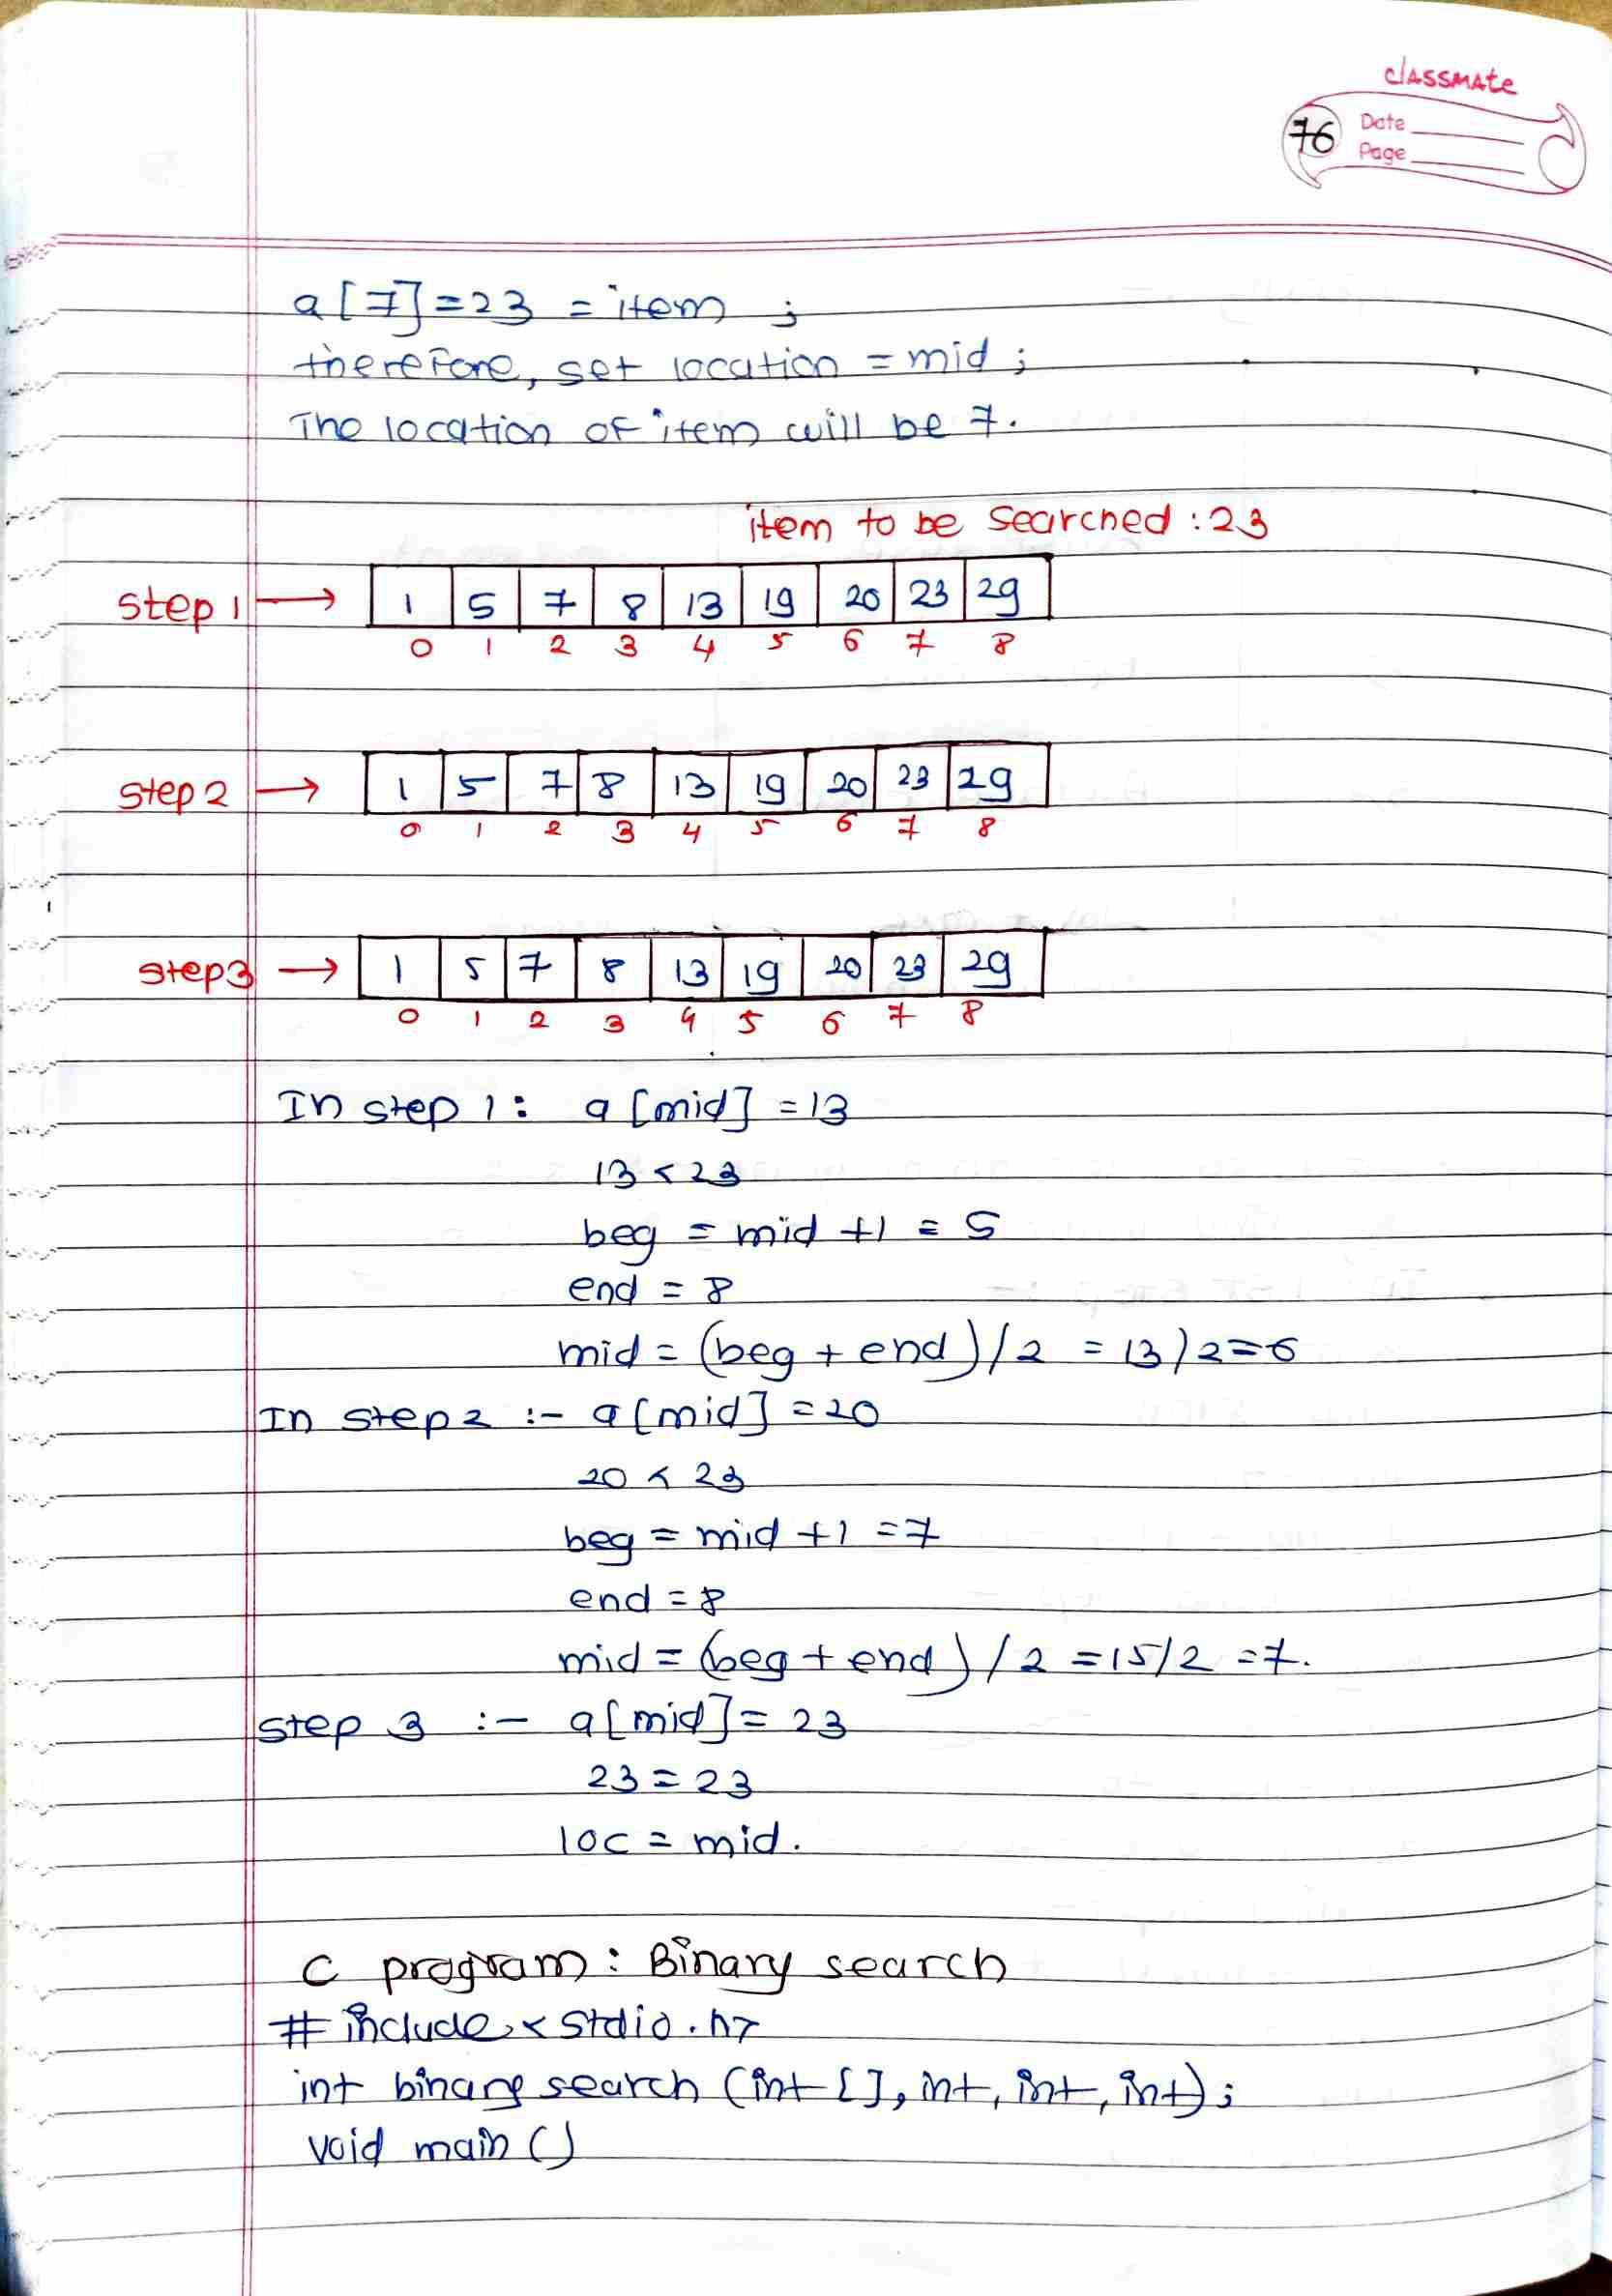 classmate
76
Date
Page
a[7]=23 = item ;
therefore, set location = mid ;
The location of item will be 7.
item to be searched : 23
step 1 → 1 5 7 8 13 19 20 23 29
0 1 2 3 4 5 6 7 8
step 2 → 1 5 7 8 13 19 20 23 29
0 1 2 3 4 5 6 7 8
step3 → 1 5 7 8 13 19 20 23 29
0 1 2 3 4 5 6 7 8
In step 1 : a[mid] = 13
13 < 23
beg = mid +1 = 5
end = 8
mid = (beg + end)/2 = 13/2=6
In step 2 :- a[mid] = 20
20 < 23
beg = mid +1 = 7
end = 8
mid = (beg + end)/2 = 15/2 = 7.
step 3 :- a[mid] = 23
23 = 23
loc = mid.
C program : Binary search
# include < stdio.h>
int binary search (int [], int, int, int) ;
void main ()